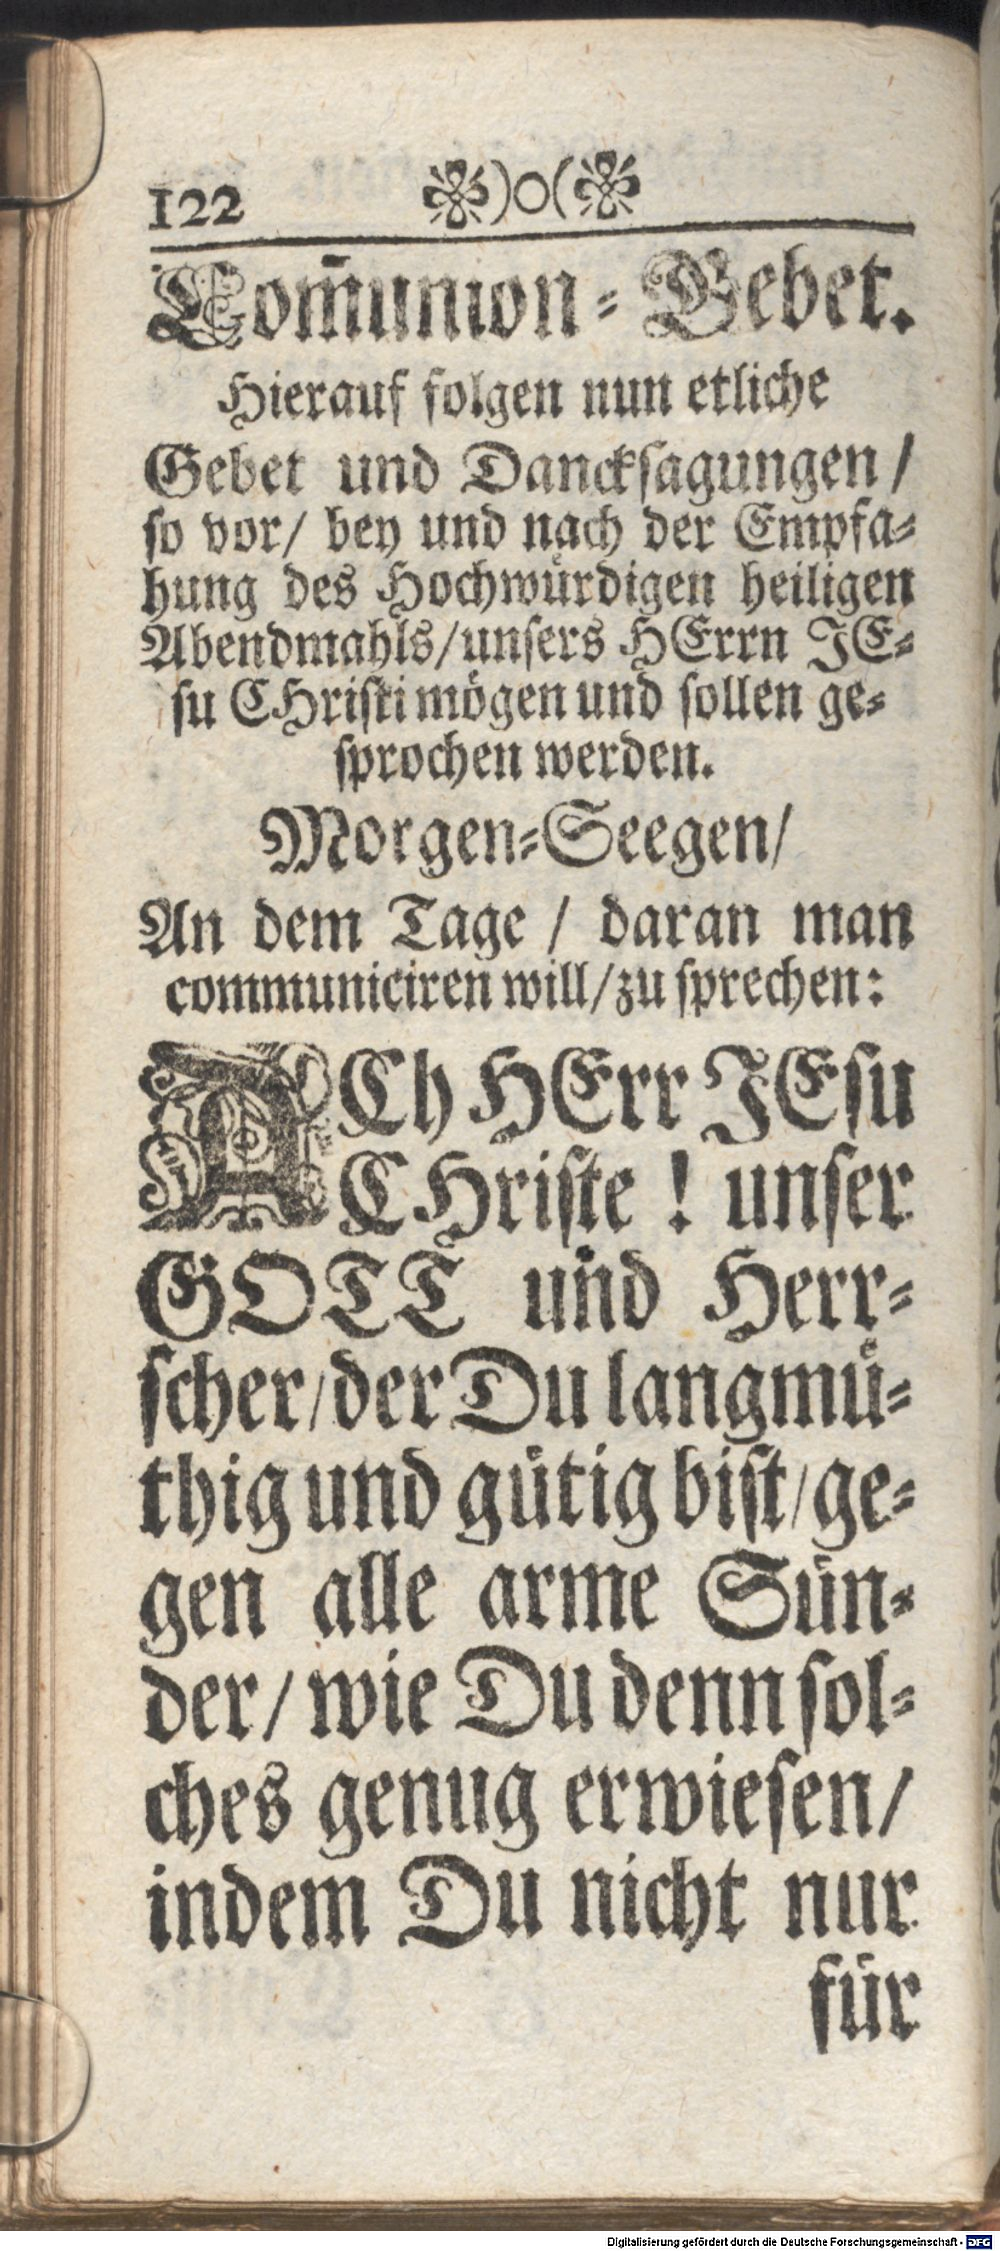 122 ❀)o(❀
Com̄union-Gebet.
Hierauf folgen nun etliche
Gebet und Danckſagungen/
ſo vor/ bey und nach der Empfa-
hung des Hochwuͤrdigen heiligen
Abendmahls/unſers HErrn JE-
ſu CHriſti moͤgen und ſollen ge-
ſprochen werden.
Morgen-Seegen/
An dem Tage / daran man
communiciren will/zu ſprechen:
ACh HErr JEſu
CHriſte ! unſer
GOTT und Herr-
ſcher/der Du langmuͤ-
thig und guͤtig biſt/ge-
gen alle arme Suͤn-
der/ wie Du denn ſol-
ches genug erwieſen/
indem Du nicht nur
fuͤr
Digitalisierung gefördert durch die Deutsche Forschungsgemeinschaft - DFG